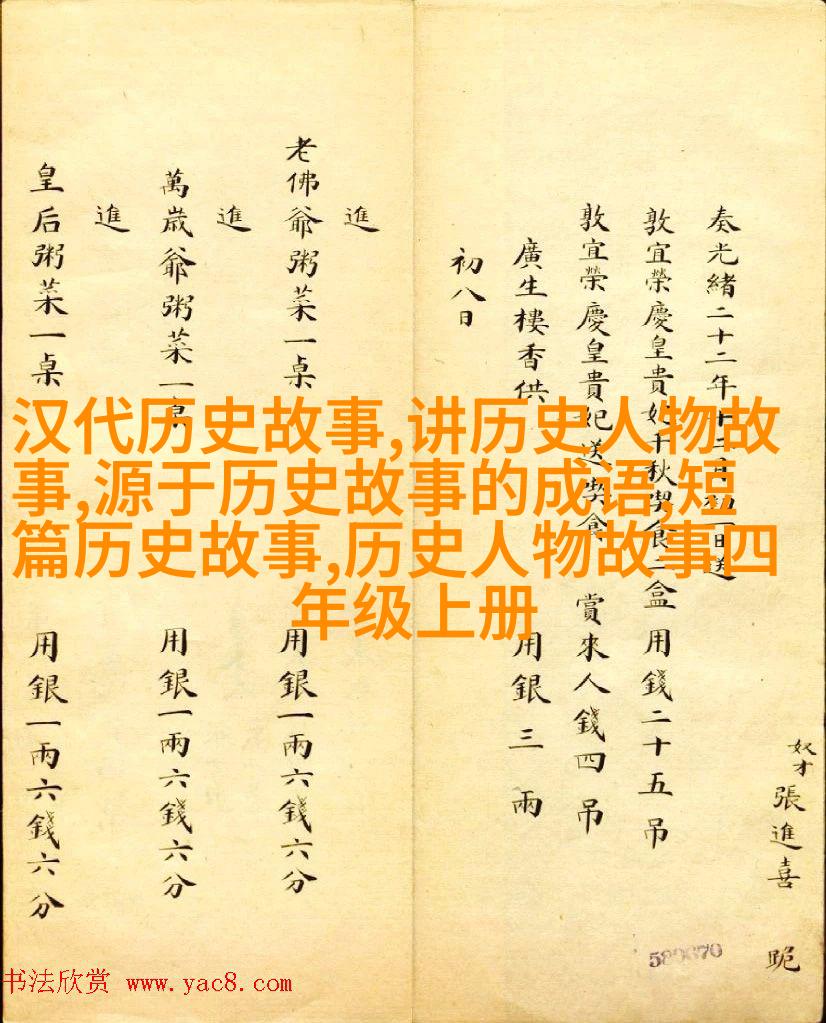 奴才張進喜 跪
奏光緒二十二年十二月初一日送
敦宜榮慶皇貴妃千秋喫食二盒 用錢二十五吊
敦宜榮慶皇貴妃送喫食 賞來人錢四吊
廣生樓香供 用銀三兩
初八日
進
老佛爺粥菜一桌 用銀一兩六錢六分
進
萬歲爺粥菜一桌 用銀一兩六錢六分
進
皇后粥菜一桌 用銀一兩六錢六分
汉代历史故事,讲历史人物故
事,源于历史故事的成语,短
篇历史故事,历史人物故事四
年级上册
书法欣赏 www.yac8.com